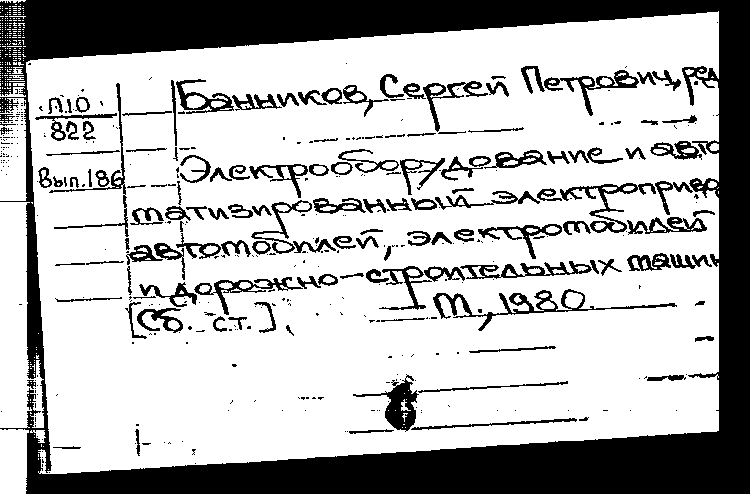 Банников, Сергей Петрович, ред
П10
822
Вып.186
Электрооборудование и авто
матизированный электроприво
автомобилей, электромобилей
и дорожно-строительных машин
[Сб. ст.]. — М., 1980.